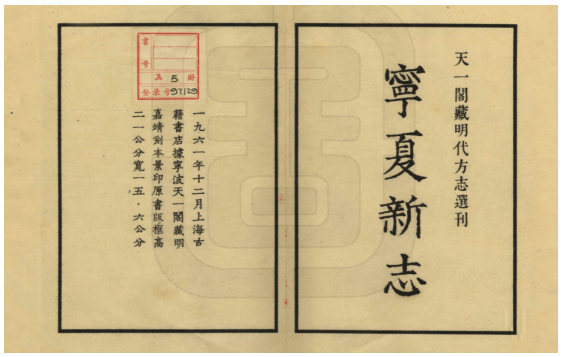 天一閣藏明代方志選刊
寧夏新志
一九六一年十二月上海古
籍書店據寧波天一閣藏明
嘉靖刻本景印原書版框高
二一公分寬一五·六公分
書號
共 5 冊
登录号97129